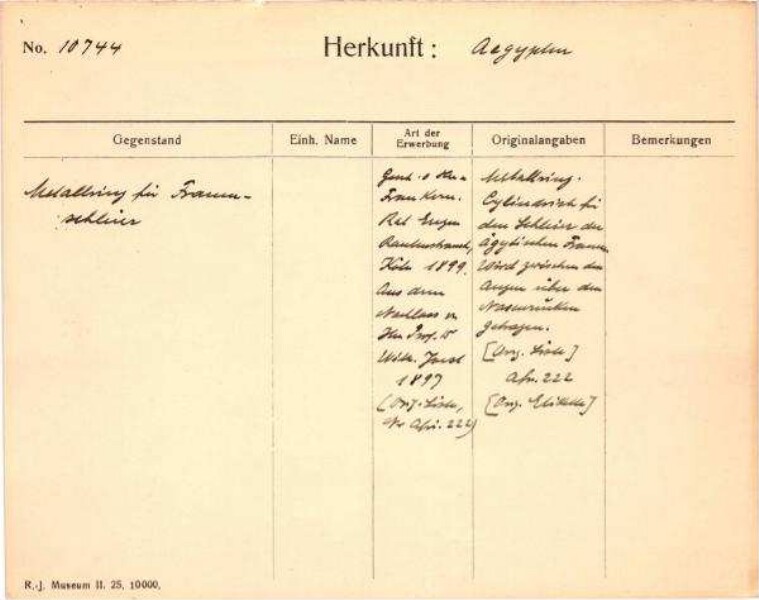 No. 10744 Herkunft: Aegypten
Gegenstand Einh. Name Art der Erwerbung Originalangaben Bemerkungen
Metallring für Frauen-
schleier
Frau Kom.
Rat Eugen
Rautenstrauch,
Köln 1899.
Aus dem
Nachlass v.
Hn Prof. Dr
Wilh. Joest
1897
(Orig. Liste,
No Afr. 222)
Metallring.
Cylindrisch für
den Schleier der
ägyptischen Frauen.
Wird zwischen den
Augen über dem
Nasenrücken
getragen.
[Orig. Liste]
Afr. 222
[Orig. Etikette]
R.-J. Museum II. 25. 10000.